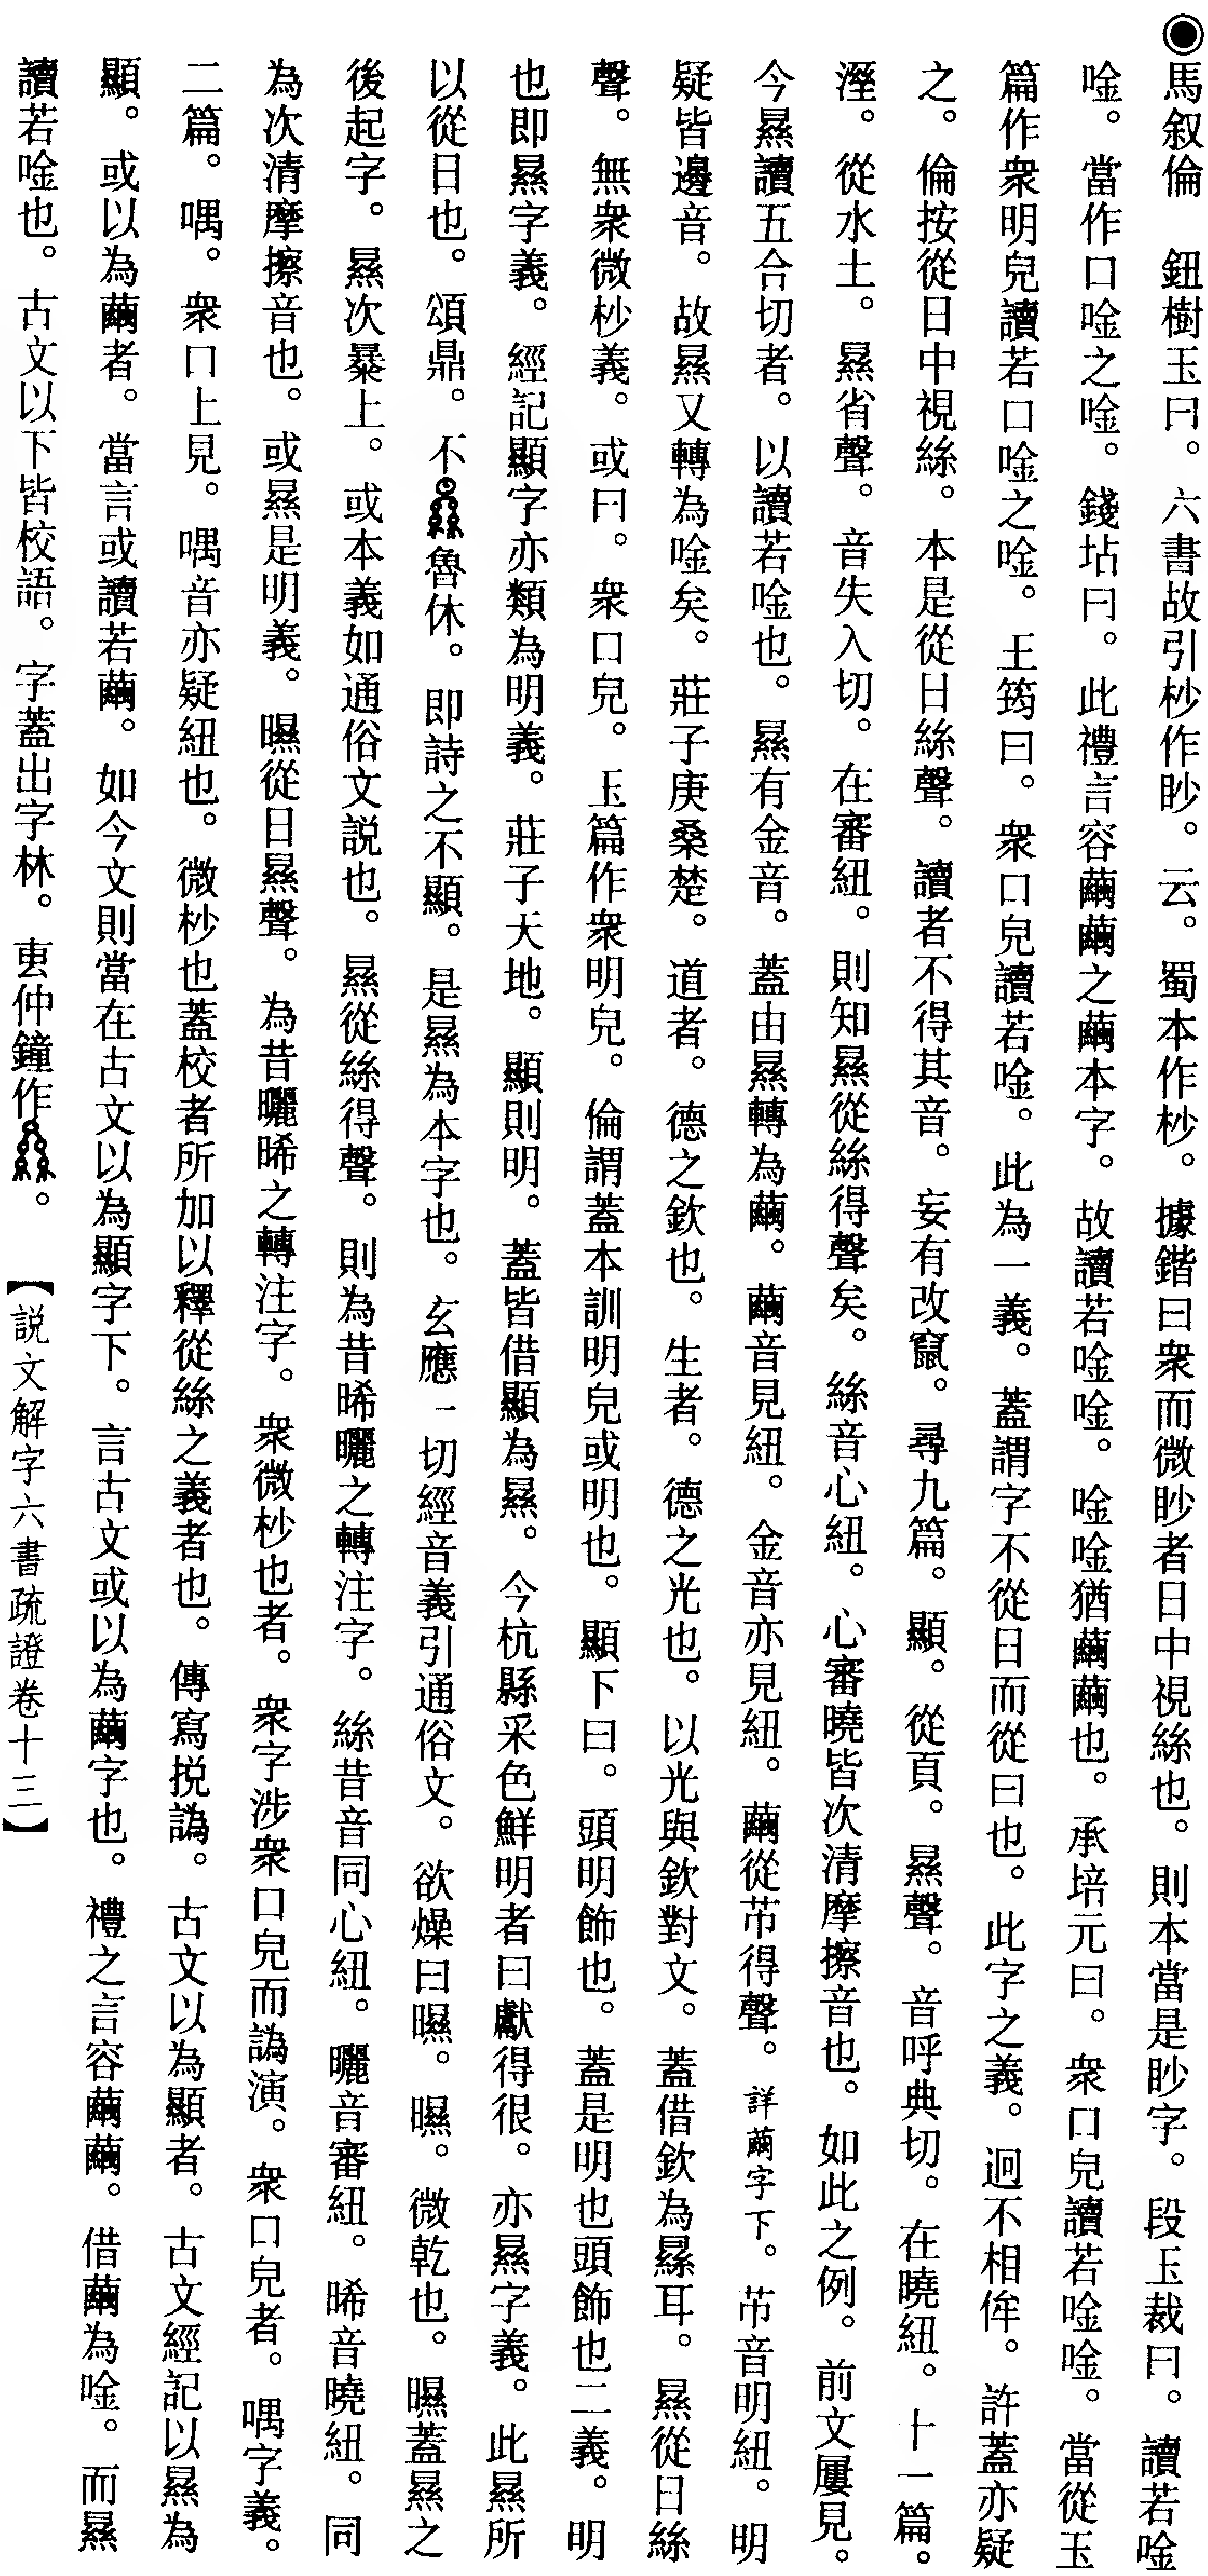 ◉馬叙倫　鈕樹玉曰。六書故引杪作眇。云。蜀本作杪。據鍇曰衆而微眇者日中視絲也。則本當是眇字。段玉裁曰。讀若唫
唫。當作口唫之唫。錢坫曰。此禮言容繭繭之繭本字。故讀若唫唫。唫唫猶繭繭也。承培元曰。衆口皃讀若唫唫。當從玉
篇作衆明皃讀若口唫之唫。王筠曰。衆口皃讀若唫。此為一義。蓋謂字不從日而從曰也。此字之義。迥不相侔。許蓋亦疑
之。倫按從日中視絲。本是從日絲聲。讀者不得其音。妄有改竄。尋九篇。顯。從頁。㬎聲。音呼典切。在曉紐。十一篇。
溼。從水土。㬎省聲。音失入切。在審紐。則知㬎從絲得聲矣。絲音心紐。心審曉皆次清摩擦音也。如此之例。前文屢見。
今㬎讀五合切者。以讀若唫也。㬎有金音。蓋由㬎轉為繭。繭音見紐。金音亦見紐。繭從芇得聲。詳繭字下。芇音明紐。明
疑皆邊音。故㬎又轉為唫矣。莊子庚桑楚。道者。德之欽也。生者。德之光也。以光與欽對文。蓋借欽為㬎耳。㬎從日絲
聲。無衆微杪義。或曰。衆口皃。玉篇作衆明皃。倫謂蓋本訓明皃或明也。顯下曰。頭明飾也。蓋是明也頭飾也二義。明
也即㬎字義。經記顯字亦類為明義。莊子天地。顯則明。蓋皆借顯為㬎。今杭縣采色鮮明者曰獻得很。亦㬎字義。此㬎所
以從日也。頌鼎。不魯休。即詩之不顯。是㬎為本字也。玄應一切經音義引通俗文。欲燥曰㬤。㬤。微乾也。㬤蓋㬎之
後起字。㬎次暴上。或本義如通俗文説也。㬎從絲得聲。則為昔晞曬之轉注字。絲昔音同心紐。曬音審紐。晞音曉紐。同
為次清摩擦音也。或㬎是明義。㬤從日㬎聲。為昔曬晞之轉注字。衆微杪也者。衆字涉衆口皃而譌演。衆口皃者。喁字義。
二篇。喁。衆口上見。喁音亦疑紐也。微杪也蓋校者所加以釋從絲之義者也。傳寫挩譌。古文以為顯者。古文經記以㬎為
顯。或以為繭者。當言或讀若繭。如今文則當在古文以為顯字下。言古文或以為繭字也。禮之言容繭繭。借繭為唫。而㬎
讀若唫也。古文以下皆校語。字蓋出字林。叀仲鐘作。　【説文解字六書疏證卷十三】